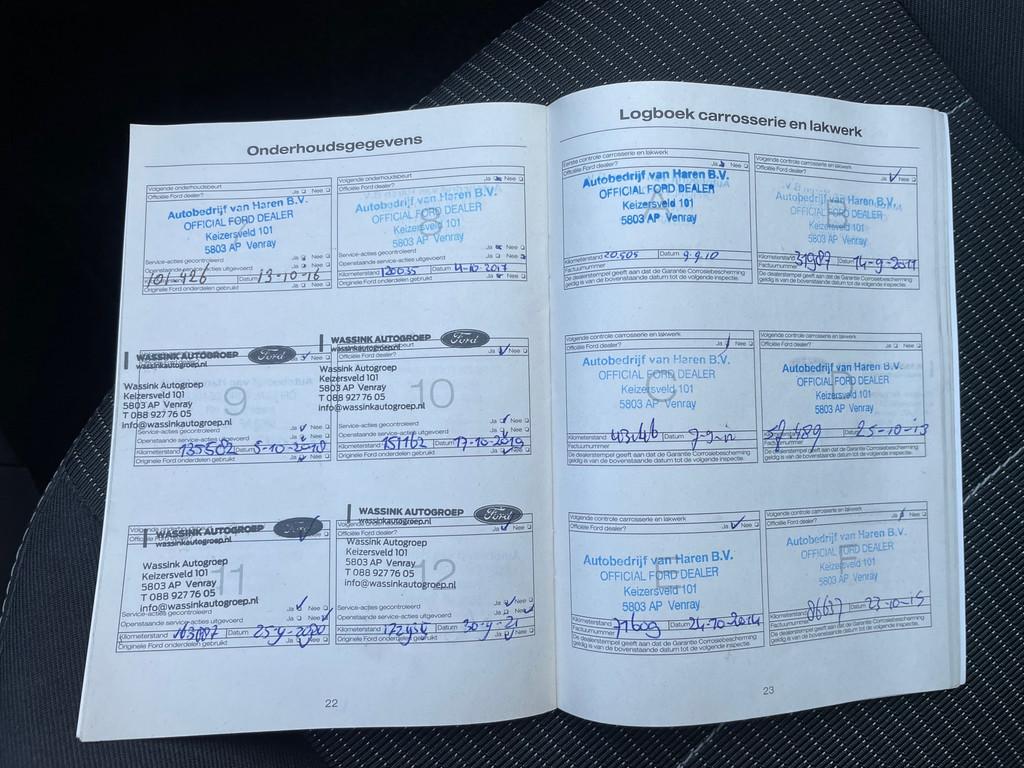 Onderhoudsgegevens
Volgende onderhoudsbeurt
Officiële Ford dealer? Ja Nee
Autobedrijf van Haren B.V.
OFFICIAL FORD DEALER
Keizersveld 101
5803 AP Venray
Service-acties gecontroleerd Ja Nee
Openstaande service-acties uitgevoerd Ja Nee
101.426 13-10-16
Originele Ford onderdelen gebruikt Ja Nee
Volgende onderhoudsbeurt
Officiële Ford dealer? Ja Nee
Autobedrijf van Haren B.V.
OFFICIAL FORD DEALER
8
Keizersveld 101
5803 AP Venray
Service-acties gecontroleerd Ja Nee
Openstaande service-acties uitgevoerd Ja Nee
Kilometerstand 120035 Datum
Originele Ford onderdelen gebruikt Ja Nee
WASSINK AUTOGROEP Ford
wassinkautogroep.nl Nee
Wassink Autogroep
Keizersveld 101
5803 AP Venray
9
T 088 927 76 05
info@wassinkautogroep.nl
Service-acties gecontroleerd Ja Nee
Openstaande service-acties uitgevoerd Ja Nee
Kilometerstand 135502 Datum
Originele Ford onderdelen gebruikt Ja Nee
WASSINK AUTOGROEP Ford
wassinkautogroep.nl
Officiële Ford dealer? Ja Nee
Wassink Autogroep
Keizersveld 101
5803 AP Venray
10
T 088 927 76 05
info@wassinkautogroep.nl
Service-acties gecontroleerd Ja Nee
Openstaande service-acties uitgevoerd Ja Nee
Kilometerstand 151162 Datum 17-10-2019
Originele Ford onderdelen gebruikt Ja Nee
WASSINK AUTOGROEP Ford
wassinkautogroep.nl
Wassink Autogroep
Keizersveld 101
5803 AP Venray
11
T 088 927 76 05
info@wassinkautogroep.nl
Service-acties gecontroleerd Ja Nee
Openstaande service-acties uitgevoerd Ja Nee
Kilometerstand Datum
Originele Ford onderdelen gebruikt Ja Nee
WASSINK AUTOGROEP Ford
wassinkautogroep.nl
Officiële Ford dealer? Ja Nee
Wassink Autogroep
Keizersveld 101
5803 AP Venray
12
T 088 927 76 05
info@wassinkautogroep.nl
Service-acties gecontroleerd Ja Nee
Openstaande service-acties uitgevoerd Ja Nee
Kilometerstand Datum
Originele Ford onderdelen gebruikt Ja Nee
22
Logboek carrosserie en lakwerk
Eerste controle carrosserie en lakwerk
Officiële Ford dealer? Ja Nee
Autobedrijf van Haren B.V.
OFFICIAL FORD DEALER
Keizersveld 101
5803 AP Venray
Kilometerstand 20.505 Datum 9.9.10
Factuurnummer
De dealerstempel geeft aan dat de Garantie Corrosiebescherming
geldig is van bovenstaande datum tot de volgende inspectie.
Volgende controle carrosserie en lakwerk
Officiële Ford dealer? Ja Nee
Autobedrijf van Haren B.V.
B
OFFICIAL FORD DEALER
Keizersveld 101
5803 AP Venray
Kilometerstand 31987 Datum 14-9-2011
Factuurnummer
De dealerstempel geeft aan dat de Garantie Corrosiebescherming
geldig is van bovenstaande datum tot de volgende inspectie.
Volgende controle carrosserie en lakwerk
Officiële Ford dealer? Ja Nee
Autobedrijf van Haren B.V.
OFFICIAL FORD DEALER
C
Keizersveld 101
5803 AP Venray
Kilometerstand 43446 Datum
Factuurnummer
De dealerstempel geeft aan dat de Garantie Corrosiebescherming
geldig is van bovenstaande datum tot de volgende inspectie.
Volgende controle carrosserie en lakwerk
Officiële Ford dealer? Ja Nee
Autobedrijf van Haren B.V.
OFFICIAL FORD DEALER
D
Keizersveld 101
5803 AP Venray
57.489 Datum 25-10-13
Factuurnummer
De dealerstempel geeft aan dat de Garantie Corrosiebescherming
geldig is van bovenstaande datum tot de volgende inspectie.
Volgende controle carrosserie en lakwerk
Officiële Ford dealer? Ja Nee
Autobedrijf van Haren B.V.
OFFICIAL FORD DEALER
E
Keizersveld 101
5803 AP Venray
Kilometerstand 71609 Datum 24-10-2014
Factuurnummer
De dealerstempel geeft aan dat de Garantie Corrosiebescherming
geldig is van bovenstaande datum tot de volgende inspectie.
Volgende controle carrosserie en lakwerk
Officiële Ford dealer? Ja Nee
Autobedrijf van Haren B.V.
OFFICIAL FORD DEALER
F
Keizersveld 101
5803 AP Venray
Kilometerstand 86637 Datum 23-10-15
Factuurnummer
De dealerstempel geeft aan dat de Garantie Corrosiebescherming
geldig is van bovenstaande datum tot de volgende inspectie.
23